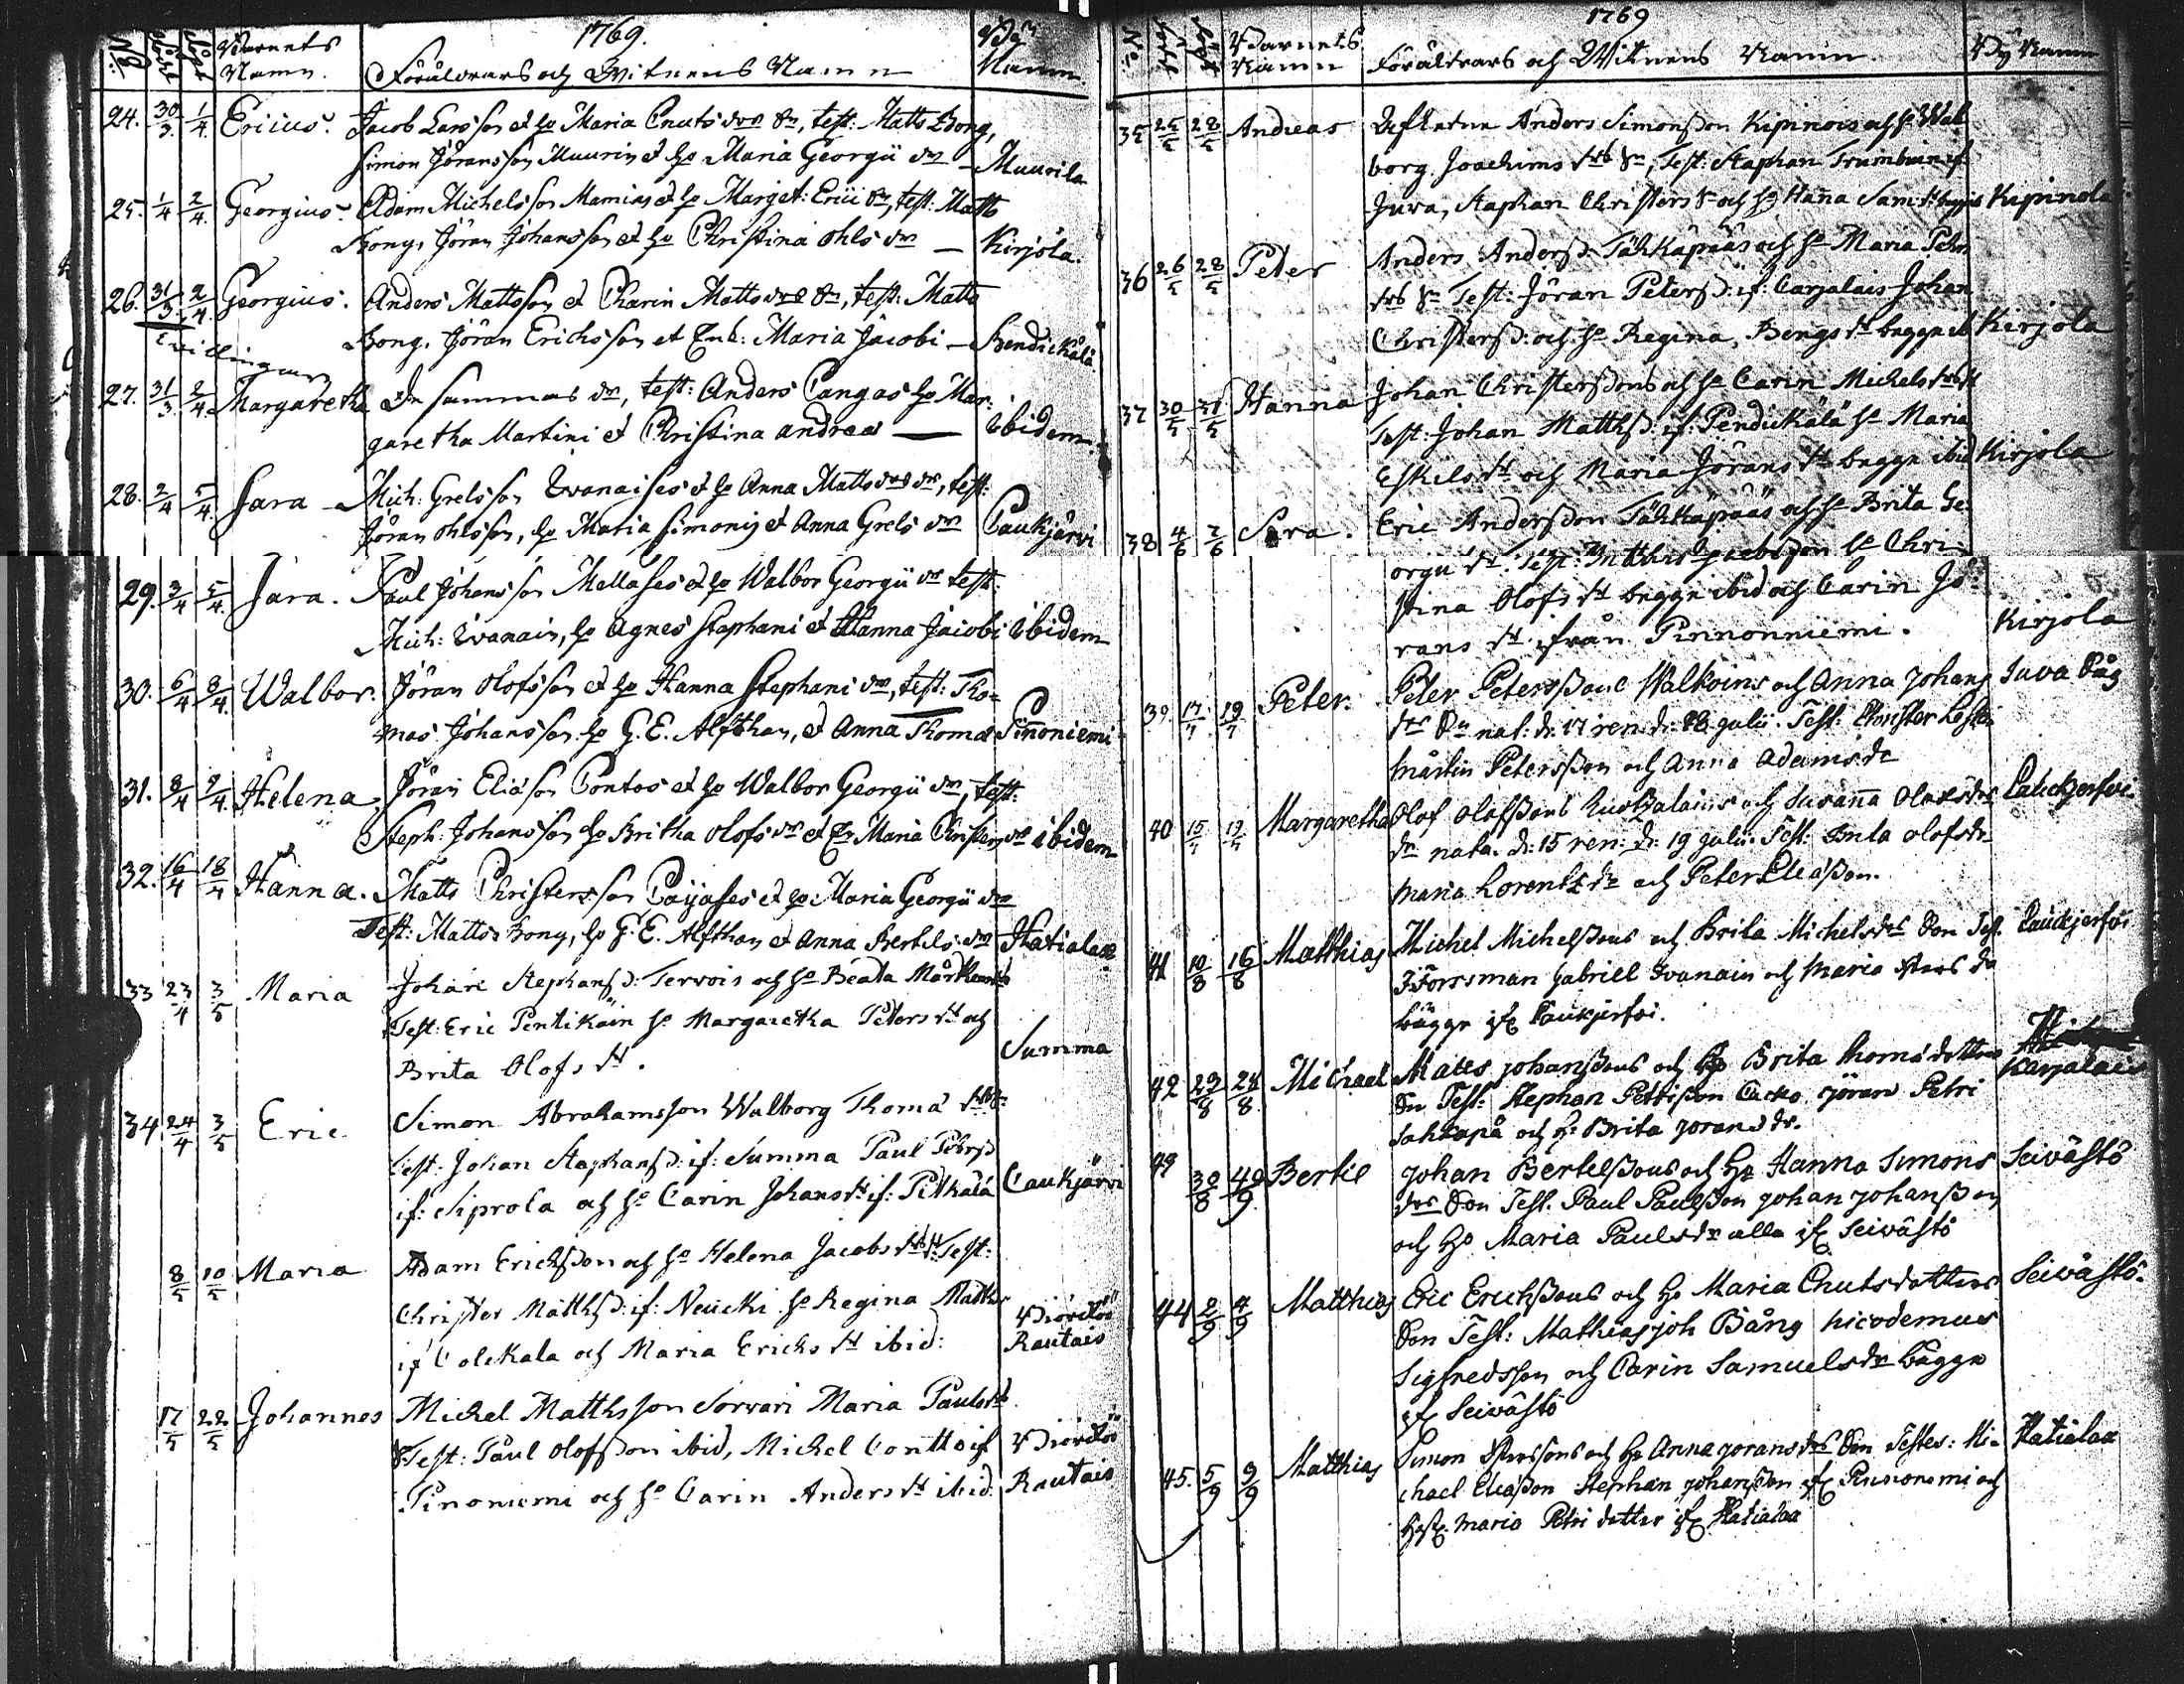 1769.
No: Född Döpt Barnets Namn. Föräldrars och Witnens Namn By Namn
24. 30/3. 1/4. Ericus. Jacob Larsson et ho Maria Cnuts dr, test: Matts Bong,
Simon Jöransson Muurin et ho Maria Georgii dr — Muurila
25. 1/4 2/4. Georgius. Adam Michelsson Mamias et ho Marget: Erici dr, test: Matts
Bong, Jöran Johansson et ho Christina Ohls dr — Kirjola.
26. 31/3. 2/4. Georgius. Anders Mattsson et Charin Matts dr, test: Matts
Bong, Jöran Erichsson et Enk: Maria Jacobi — Bendickälä.
Tvillingar
27. 31/3. 2/4. Margaretha De sammas dr, test: Anders Cangas ho Mar-
garetha Martini et Christina Andreæ — Ibidem.
28. 2/4 5/4. Sara — Mich: Grelsson Ivanaises et ho Anna Matts dr, test:
Jöran Ohlsson, ho Maria Simonis et Anna Grels dr Caukjärvi
29. 3/4 5/4. Sara. Paul Johansson Mellases et ho Walbor Georgii dr test:
Mich: Ivanain, ho Agnes Stephani et Hanna Jacobi Ibidem
30. 6/4 8/4. Walbor. Jöran Olofsson et ho Hanna Stephani dr, test: Tho-
mas Johansson ho G. E. Alfthan, et Anna Thomæ Pinoniemi
31. 8/4 9/4. Helena. Jöran Eliasson Pontos et ho Walbor Georgii dr, test:
Steph: Johansson ho Britha Olofs dr et Maria Christers dr ibidem
32. 16/4 18/4 Hanna. Matts Christersson Paijases et ho Maria Georgii dr
Test: Matts Bong, ho G. E. Alfthan et Anna Bertels dr Hatialax
33 23/4 3/5 Maria Johan Stephans: Tervois och ho Beata
Test: Eric Pentikäin ho Margaretha Peters dr och
Brita Olofs dr. Summa
34 24/4 3/5 Eric Simon Abrahamsson Walborg Thomæ
Test: Johan Staphans: if: Summa Paul
if: Siprola och ho Carin Johans dr if: Pitkälä Caukjärvi
8/5 10/5 Maria Adam Erichsson och ho Helena Jacobs dr Test:
Christer Matths: if: Neucki ho Regina Matths
if Colckala och Maria Erichs dr ibid: Biörckö Rautais
17/5 22/5 Johannes Michel Matthsson Sorvari Maria Pauls
Test: Paul Olofsson ibid, Michel Contto if Biörckö
Pinoniemi och ho Carin Anders dr ibid. Rautais
1769
No: Född Döpt Barnets Namn Föräldrars och Witnens Namn. By Namn
35 25/5 28/5 Andreas Anders Simonsson Kipinois och ho Wal
borg Joachims dr, Test: Staphan Trumbuin if
Juva, Staphan Christers och ho Hanna Kipinola
36 26/5 28/5 Peter Anders Anders: Tähkäpääs och ho Maria
Test: Jöran Peters: if: Carjalais Johan
Christers: och ho Regina, Bengs dr begge ib Kirjola
37 30/5 31/5 Hanna Johan Christerssons och ho Carin Michels
Test: Johan Matths: if: Pendickälä ho Maria
Eskels dr och Maria Jörans dr begge ibid Kirjola
38 4/6 7/6 Sara. Eric Andersson Tähkäpääs och ho Brita Ge-
orgii dr. Test: Matthis Jacobsson ho Chri-
stina Olofs dr begge ibid och Carin Jö-
rans dr ifrån Pinnonniemi. Kirjola
39. 17/7 19/7 Peter. Peter Peterssons Walkoins och Anna Johans Juva Båg
dr nat: d: 17 ren: d: 18 julii. Test: Christer
Mårtin Petersson och Anna Adams dr
40 15/7 19/7 Margaretha Olof Olofssons och Susanna Olofs dr Lauckjerfvi
nata. d: 15 ren: d: 19 julii. Test: Olofs dr
Maria Lorents dr och Peter Eliasson.
41 10/8 16/8 Matthias Michel Michelssons och Brita Michels dr Son Test. Caukjerfvi
J: Forssman Gabriell Ivanain och Maria dr
bägge if Caukjerfvi.
42 23/8 24/8 Michael Matts Johanssons och ho Brita Thomædotters Karjalais
Son Test: Stephan Pettisson Cacko Jöran Petri
Sahkapä och ho Brita Jorans dr.
49 30/8 49/9 Bertil Johan Bertelssons och ho Hanna Simons Seiväsö
drs Son Test. Paul Paulsson Johan Johansson
och ho Maria Pauls dr alla if Seivästö
44 2/9 4/9 Matthias Eric Erichssons och ho Maria Cnutsdotters Seivästö.
Son Test: Mathias Joh Bång Nicodemus
Sigfredsson och Carin Samuels dr bägge
if Seivästö
45. 5/9 9/9 Matthias Simon och ho Anna Jorans drs Son Testes: Mi- Hatialax
chael Eliasson Stephan Johansson if Pinnonemi och
Maria Petri dotter if Hatialax